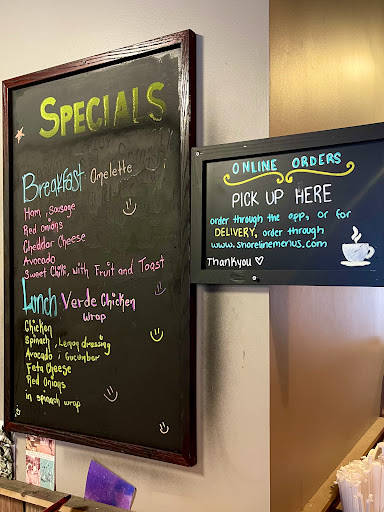 SPECIALS
Breakfast Omelette
Ham, Sausage
Red onions
Cheddar Cheese
Avocado
Sweet Chili, with Fruit and Toast
Lunch Verde Chicken
Wrap
Chicken
Spinach, Lemon dressing
Avocado, Cucumber
Feta Cheese
Red Onions
in spinach wrap
ONLINE ORDERS
PICK UP HERE
order through the app, or for
DELIVERY, order through
www.shorelinemenus.com
Thankyou ♡